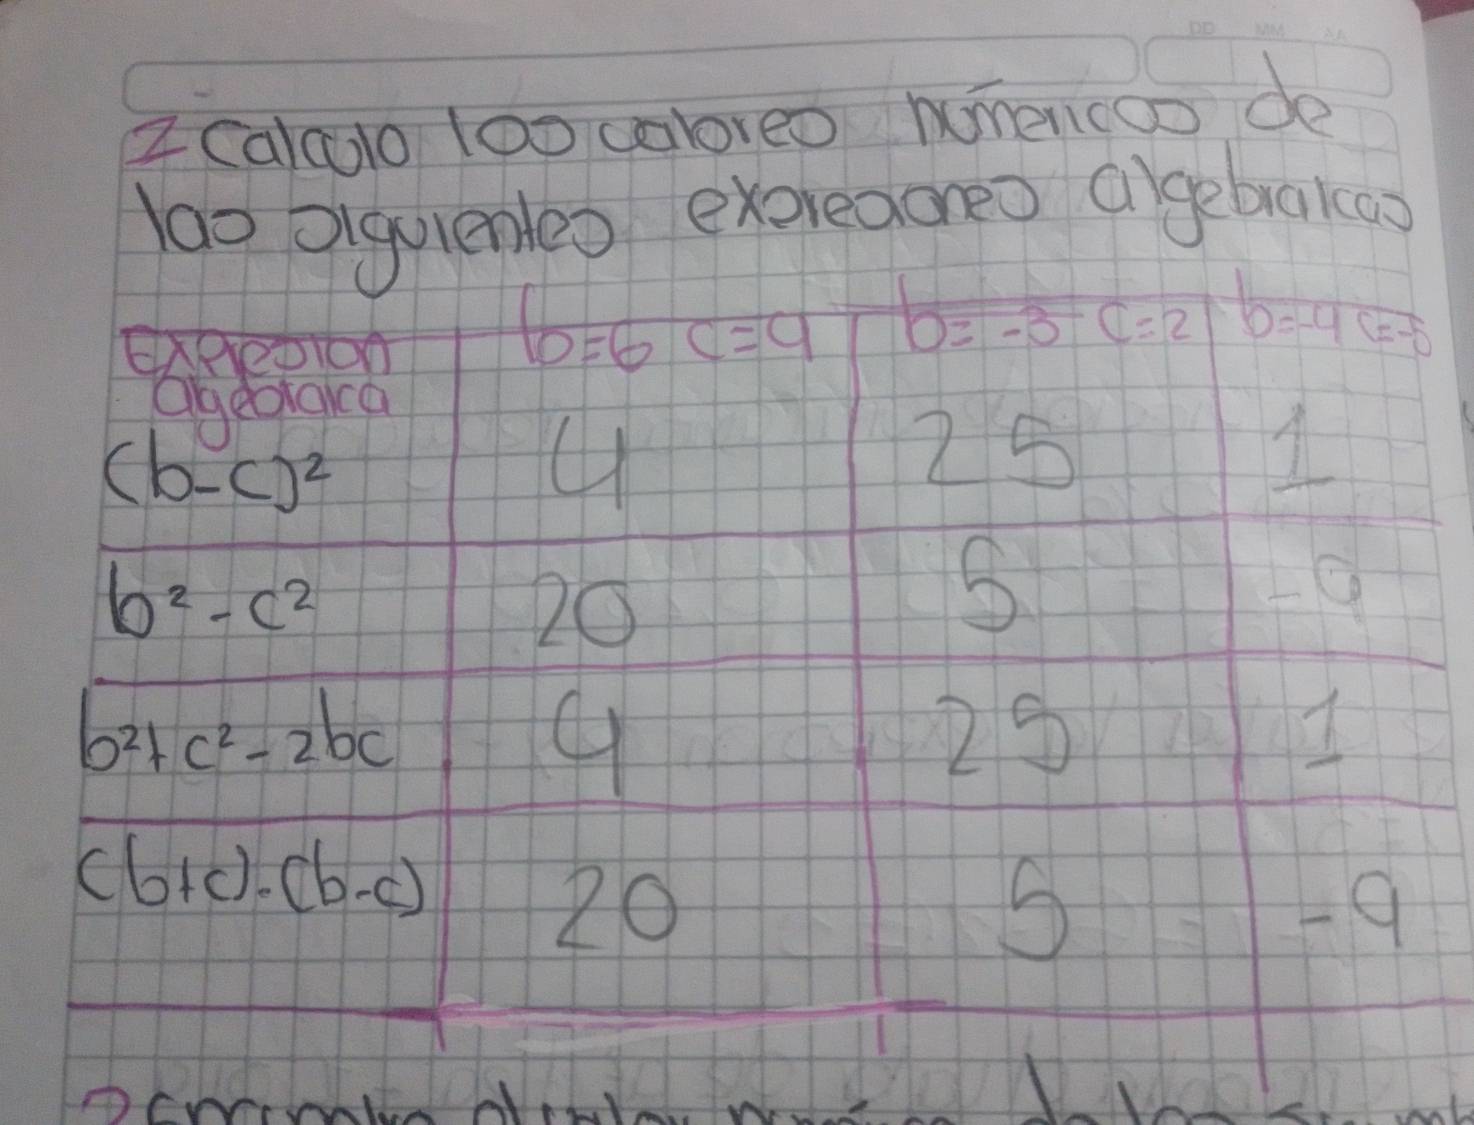 DD MM AA
2 Calculo los valores númericos de
las siguientes expresiones algebraicas
Expresion algebraica b=6 c=4 b=-3 c=2 b=-4 c=-5
(b-c)² 4 25 1
b²-c² 20 5 -9
b²+c²-2bc 4 25 1
(b+c).(b-c) 20 5 -9